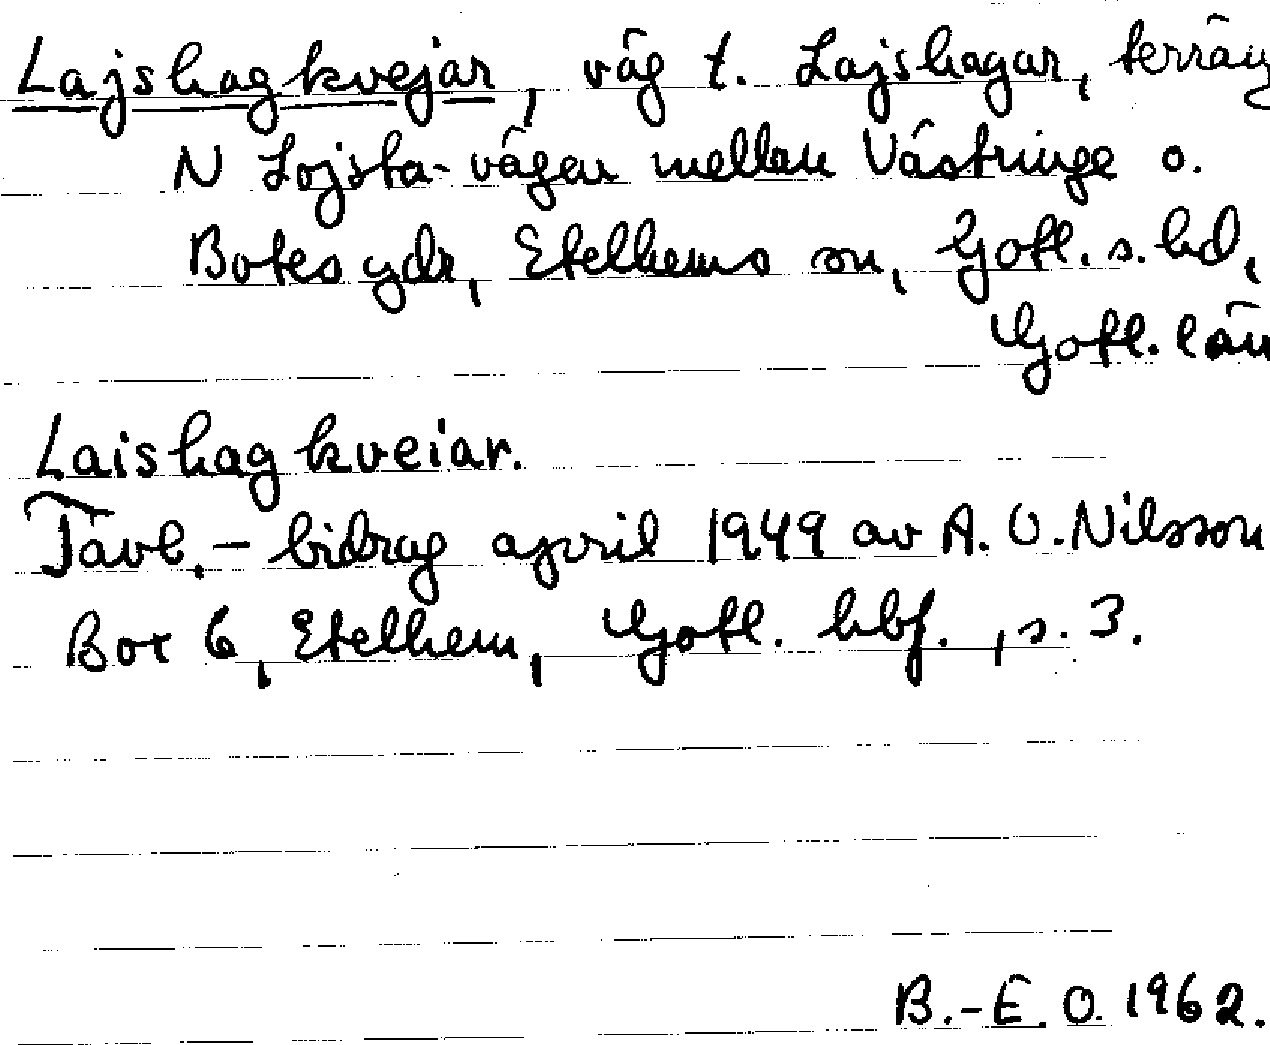 Lajshagkvejar, väg t. Lajshagar, terräng
N Lojsta-vägen mellan Västringe o.
Botes gdr, Etelhems sn, Gotl. s. hd,
Gotl. län
Laishagkveiar.
Tävl.-bidrag april 1949 av A. O. Nilsson
Box 6, Etelhem, Gotl. hbf., s. 3.
B.-E. O. 1962.